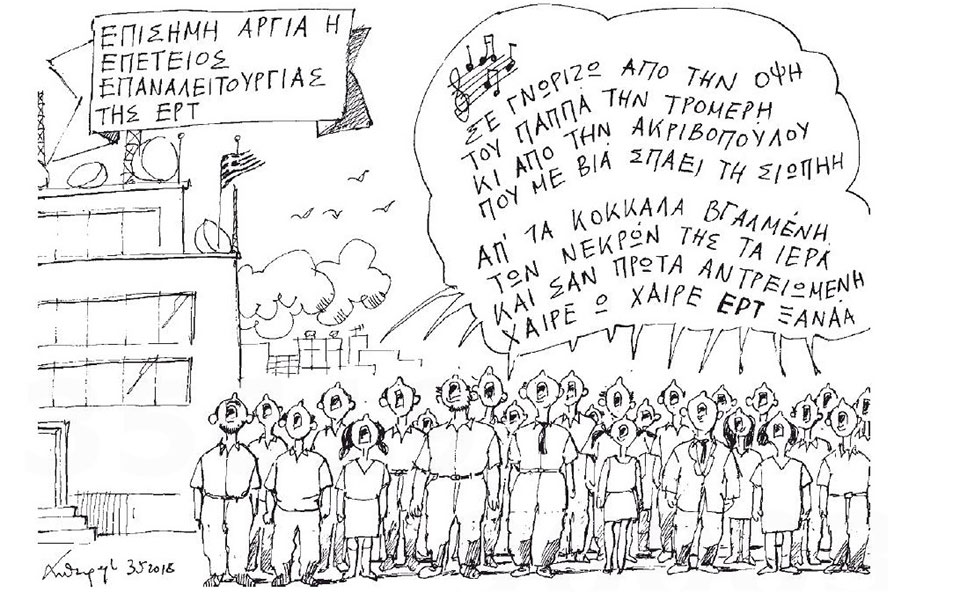 ΕΠΙΣΗΜΗ ΑΡΓΙΑ Η
ΕΠΕΤΕΙΟΣ
ΕΠΑΝΑΛΕΙΤΟΥΡΓΙΑΣ
ΤΗΣ ΕΡΤ
ΣΕ ΓΝΩΡΙΖΩ ΑΠΟ ΤΗΝ ΟΨΗ
ΤΟΥ ΠΑΠΠΑ ΤΗΝ ΤΡΟΜΕΡΗ
ΚΙ ΑΠΟ ΤΗΝ ΑΚΡΙΒΟΠΟΥΛΟΥ
ΠΟΥ ΜΕ ΒΙΑ ΣΠΑΕΙ ΤΗ ΣΙΩΠΗ
ΑΠ' ΤΑ ΚΟΚΚΑΛΑ ΒΓΑΛΜΕΝΗ
ΤΩΝ ΝΕΚΡΩΝ ΤΗΣ ΤΑ ΙΕΡΑ
ΚΑΙ ΣΑΝ ΠΡΩΤΑ ΑΝΤΡΕΙΩΜΕΝΗ
ΧΑΙΡΕ Ω ΧΑΙΡΕ ΕΡΤ ΞΑΝΑΑ
352018